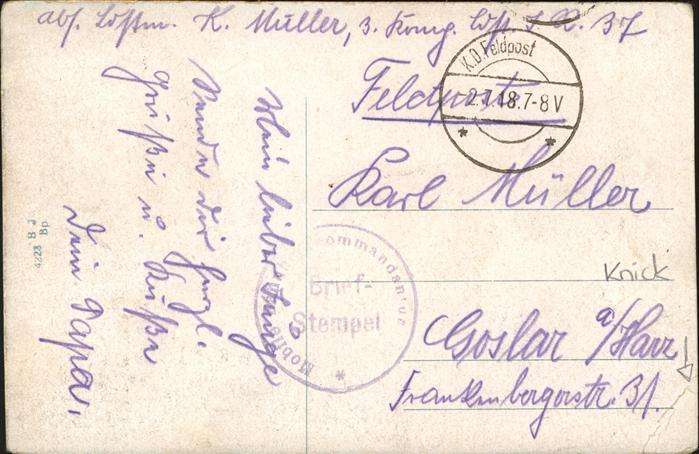 Abs. Lossm. K. Müller, 3. Komp. Ldst. I. R. 37
K.D. Feldpost
2.7.18.7-8V
Feldpost
Karl Müller
Goslar a/Harz
Frankenbergerstr. 31.
Knick
Mein lieber Junge
Sende dir herzl.
Grüße u. Küße
Dein Papa.
Mobile Kommandantur
Brief-
Stempel
4223 B J
Bp